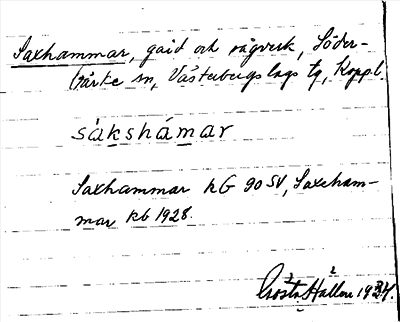 Saxhammar, gård och sågverk, Söder-
bärke sn, Västerbergslags tg, Koppl.
såkshámar
Saxhammar kG 90 SV, Saxham-
mar kb 1928.
Gösta Hallm 1934.